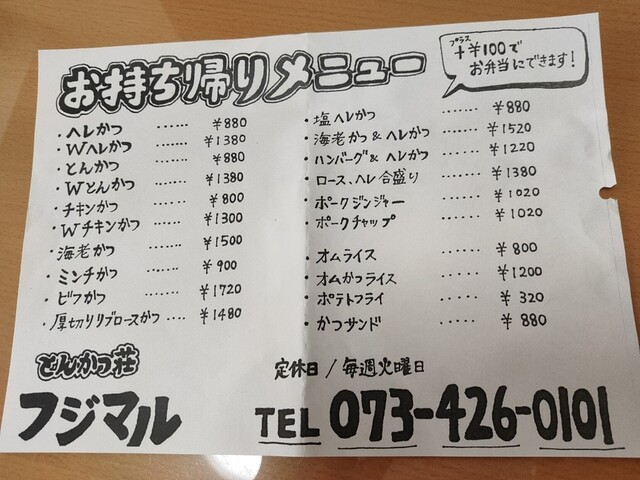 お持ち帰りメニュー
プラス
+¥100で
お弁当にできます!
・ヘレかつ ...... ¥880
・Wヘレかつ ...... ¥1380
・とんかつ ...... ¥880
・Wとんかつ ...... ¥1380
・チキンかつ ...... ¥800
・Wチキンかつ ...... ¥1300
・海老かつ ...... ¥1500
・ミンチかつ ...... ¥900
・ビフかつ ...... ¥1720
・厚切りリブロースかつ .... ¥1480
・塩ヘレかつ ...... ¥880
・海老かつ&ヘレかつ ...... ¥1520
・ハンバーグ&ヘレかつ ...... ¥1220
・ロース、ヘレ合盛り ...... ¥1380
・ポークジンジャー ...... ¥1020
・ポークチャップ ...... ¥1020
・オムライス ...... ¥800
・オムかつライス ...... ¥1200
・ポテトフライ ...... ¥320
・かつサンド ...... ¥880
とんかつ荘
フジマル
定休日/毎週火曜日
TEL 073-426-0101